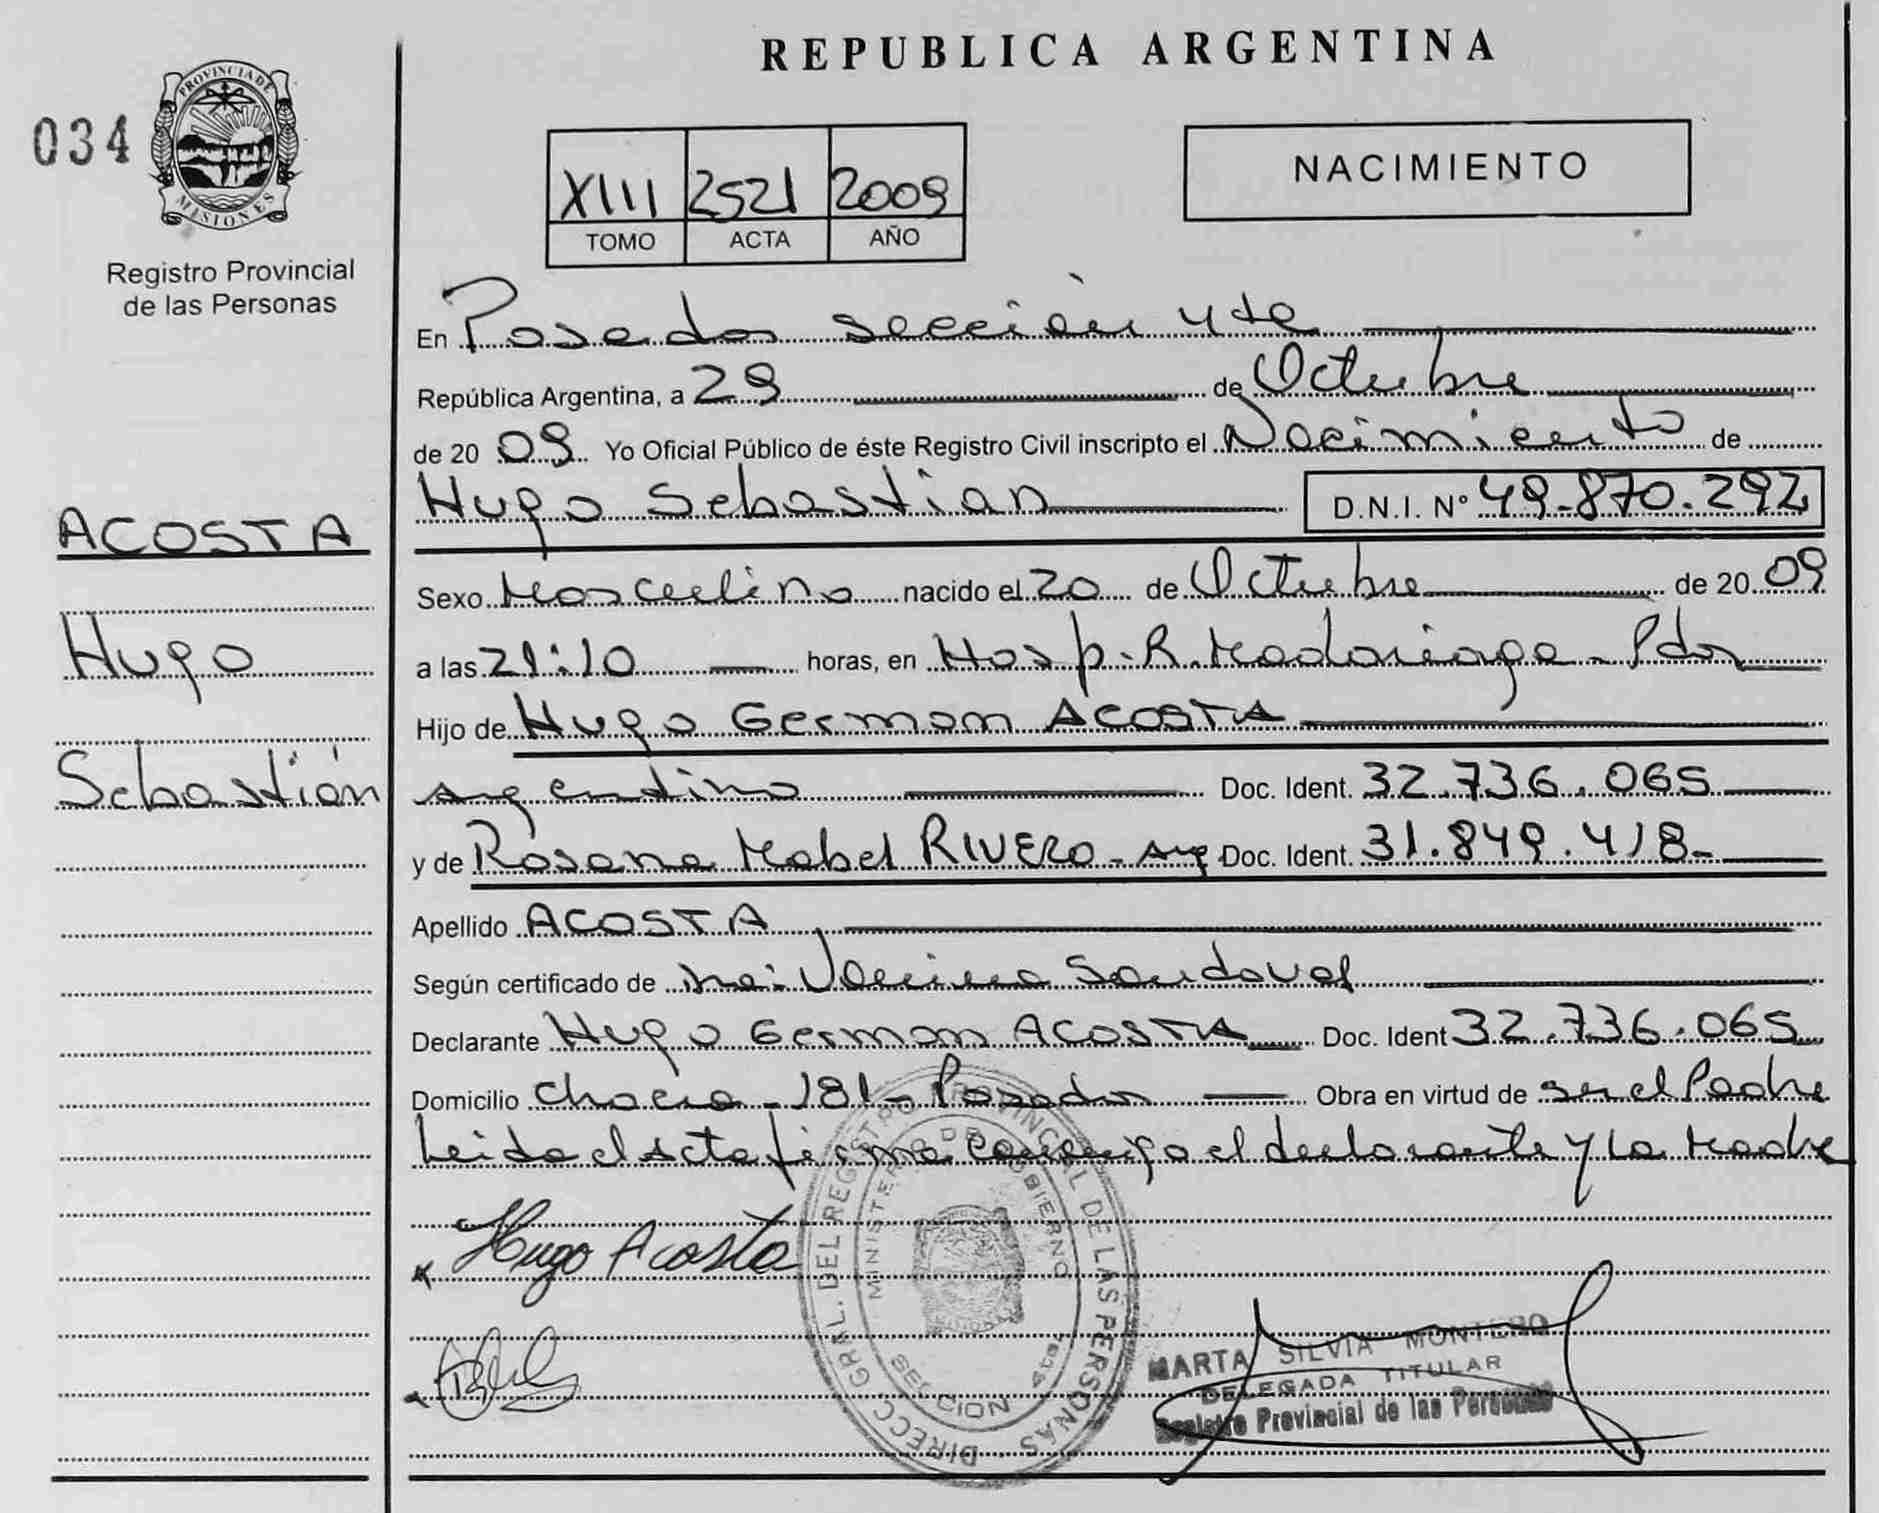 REPUBLICA ARGENTINA
034
PROVINCIA DE
MISIONES
Registro Provincial
de las Personas
XIII 2521 2009
TOMO ACTA AÑO
NACIMIENTO
En Posadas sección 4ta
República Argentina, a 29 de Octubre
de 2009 Yo Oficial Público de éste Registro Civil inscripto el Nacimiento de
Hugo Sebastian D.N.I. Nº 49.870.292
ACOSTA
Hugo
Sebastián
Sexo Masculino nacido el 20 de Octubre de 2009
a las 21:10 horas, en Hosp. R. Madariaga - Pdas
Hijo de Hugo German ACOSTA
argentino Doc. Ident. 32.736.065
y de Rosana Mabel RIVERO - arg Doc. Ident. 31.849.418-
Apellido ACOSTA
Según certificado de Sandoval
Declarante Hugo German ACOSTA Doc. Ident 32.736.065
Domicilio 181 - Posadas Obra en virtud de ser el Padre
Leida el Acta firma conmigo el declarante y la Madre
Hugo Acosta
DIRECC. GRAL. DEL REGISTRO PROVINCIAL DE LAS PERSONAS
MINISTERIO DE GOBIERNO
SECCION 4ta.
MARTA SILVIA MONTERO
DELEGADA TITULAR
Registro Provincial de las Personas